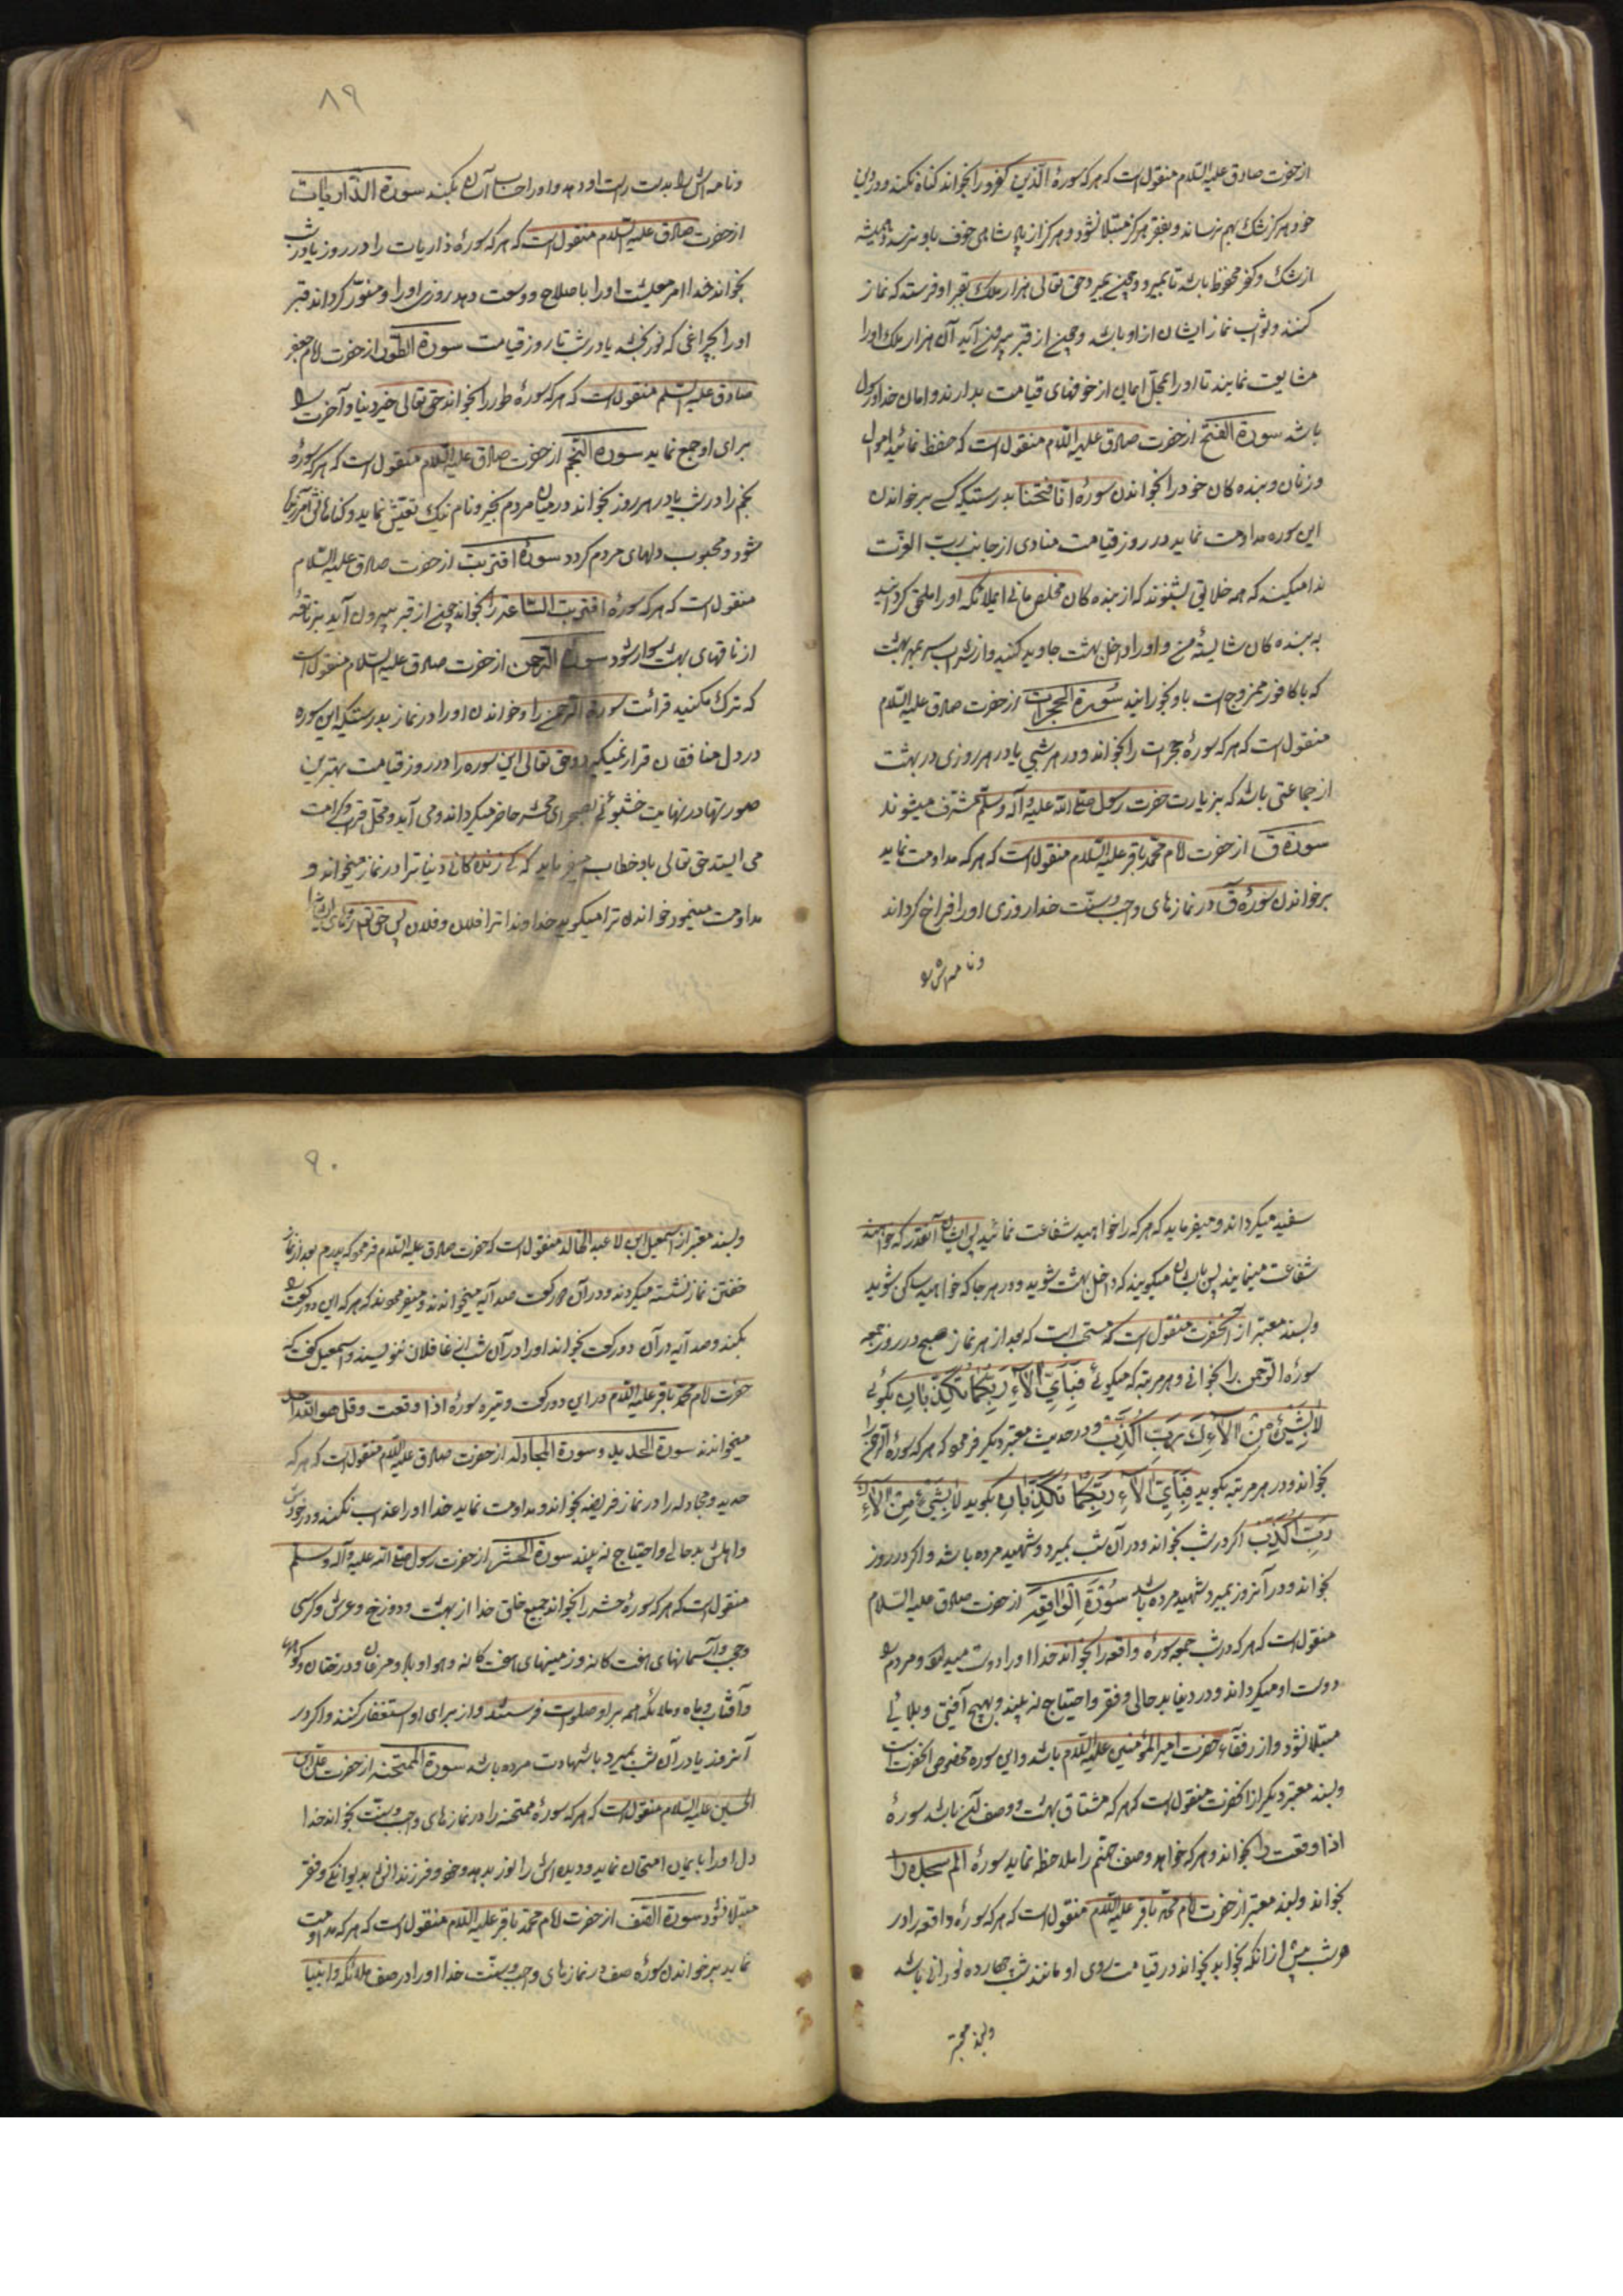 از حضرت صادق علیه السلام منقول است که هر که سورهٔ الذین کفروا بخواند کناه نکند و در دین
خود هرکز شک بهم نرساند و بفقر هرکز مبتلا نشود و هرکز از پادشاهی خوف باو نرسد و همیشه
از شک و کفر محفوظ باشد تا بمیرد و چون بمیرد حق تعالی هزار ملک بقبر او فرستد که نماز
کنند و ثواب نماز ایشان از او باشد و چون از قبر بیرون آید آن هزار ملک او را
مشایعت نمایند تا او را بمحل امان از خوفهای قیامت بدارند و امان خدا و رسول
باشد سورة الفتح از حضرت صادق علیه السلام منقول است که حفظ نمائید اموال
و زنان و بنده کان خود را بخواندن سورهٔ انا فتحنا بدرستیکه کسی بر خواندن
این سوره مداومت نماید در روز قیامت منادی از جانب رب العزت
ندا میکند که همه خلایق بشنوند که از بنده کان مخلص مانی ای ملائکه او را ملحق کردانید
به بنده کان شایستهٔ من و او را داخل بهشت جاوید کنید و از شراب سر بمهر بهشت
که با کافور ممزوج است باو بخورانید سورة الحجرات از حضرت صادق علیه السلام
منقول است که هر که سورهٔ حجرات را بخواند و در هر شبی یا در هر روزی در بهشت
از جماعتی باشد که بزیارت حضرت رسول صلی الله علیه و آله و سلم مشرف میشوند
سورة ق از حضرت امام محمد باقر علیه السلام منقول است که هر که مداومت نماید
بر خواندن سورهٔ ق در نمازهای واجب و سنت خدا روزی او را فراخ کرداند
و نامه اش را
۸۹
و نامه اش را بدست راست او دهد و او را حساب آسان بکند سورة الذاریات
از حضرت صادق علیه السلام منقول است که هر که سورهٔ ذاریات را در روز یا در شب
بخواند خدا امر معیشت او را باصلاح و وسعت دهد روزی او را و منور کرداند قبر
او را بچراغی که نور بخشد یا در شب تا روز قیامت سورة الطور از حضرت امام جعفر
صادق علیه السلم منقول است که هر که سورهٔ طور را بخواند حق تعالی خیر دنیا و آخرت را
برای او جمع نماید سورة النجم از حضرت صادق علیه السلام منقول است که هر که سورهٔ
نجم را در شب یا در هر روز بخواند در میان مردم بخیر و نام نیک تعیش نماید و کناهانش آمرزیده
شود و محبوب دلهای مردم کردد سورهٔ اقتربت از حضرت صادق علیه السلام
منقول است که هر که سورهٔ اقتربت الساعة را بخواند چون از قبر بیرون آید بر ناقهٔ
از ناقهای بهشت سوار شود سورة الرحمن از حضرت صادق علیه السلام منقول است
که ترک مکنید قرائت سورة الرحمن را و خواندن او را در نماز بدرستیکه این سوره
در دل منافقان قرار نمیکیرد و حق تعالی این سوره را در روز قیامت بهترین
صورتها در نهایت خشبوئی بصحرای محشر حاضر میکرداند و می آید و محل قرب و کرامت
می ایستد حق تعالی باو خطاب میفرماید که از زنده کانی دنیا ترا در نماز میخواند و
مداومت مینمود خواندن ترا میکوید خداوندا ترا فلان و فلان پس حق تعالی رویهای ایشانرا
سفید میکرداند و میفرماید که هر که را خواهید شفاعت نمائید پس ایشان آنقدر که خواهند
شفاعت مینمایند پس بایشان میکویند که داخل بهشت شوید و در هر جا که خواهید ساکن شوید
و بسند معتبر از آنحضرت منقول است که مستحب است که بعد از هر نماز صبح در روز جمعه
سورهٔ الرحمن را بخوانی و هر مرتبه که میکوئی فَبِاَیِّ اٰلاٰءِ رَبِّکُمٰا تُکَذِّبٰانِ بکوئی
لاٰ بِشَیْءٍ مِنْ اٰلاٰئِکَ رَبِّ اُکَذِّبُ و در حدیث معتبر دیکر فرمود که هر که سورهٔ الرحمن را
بخواند و در هر مرتبه بکوید فَبِاَیِّ اٰلاٰءِ رَبِّکُمٰا تُکَذِّبٰانِ بکوید لاٰ بِشَیْءٍ مِنْ اٰلاٰئِکَ
رَبِّ اُکَذِّبُ اکر در شب بخواند و در آن شب بمیرد و شهید مرده باشد و اکر در روز
بخواند و در آنروز بمیرد شهید مرده باشد سُورَةُ الْوٰاقِعَه از حضرت صادق علیه السلام
منقول است که هر که در شب جمعه سورهٔ واقعه را بخواند خدا او را دوست میدارد و مردم را
دوست او میکرداند و در دنیا بدحالی و فقر و احتیاج نه بیند و بهیچ آفتی و بلائی
مبتلا نشود و از رفقاء حضرت امیر المؤمنین علیه السلام باشد و این سوره مخصوص آنحضرت است
و بسند معتبر دیکر از آنحضرت منقول است که هر که مشتاق بهشت و وصف آن باشد سورهٔ
اذا وقعت را بخواند و هر که خواهد وصف جهنم را ملاحظه نماید سورهٔ الم سجده را
بخواند و بسند معتبر از حضرت امام محمد باقر علیه السلام منقول است که هر که سورهٔ واقعه را در
هر شب پیش از آنکه بخوابد بخواند در قیامت روی او مانند شب چهارده نورانی باشد
و بسند معتبر
۹۰
و بسند معتبر از اسمعیل ابن عبد الخالد منقول است که حضرت صادق علیه السلام فرمود که پدرم بعد از نماز
خفتن نماز نشسته میکردند و در آن دو رکعت صد آیه میخواندند و میفرمودند که هر که این دو رکعت را
بکند و صد آیه در آن دو رکعت بخواند او را در آن شب از غافلان ننویسند و اسمعیل کفت که
حضرت امام محمد باقر علیه السلام در این دو رکعت وتیره سورهٔ اذا وقعت و قل هو الله احد
میخواندند سورة الحدید و سورة المجادله از حضرت صادق علیه السلام منقول است که هر که
حدید و مجادله را در نماز فریضه بخواند و مداومت نماید خدا او را عذاب نکند و در خودش
و اهلش بدحالی و احتیاج نه بیند سورة الحشر از حضرت رسول صلی الله علیه و آله و سلم
منقول است که هر که سورهٔ حشر را بخواند جمیع خلق خدا از بهشت و دوزخ و عرش و کرسی
و حجب و آسمانهای هفت کانه و زمینهای هفت کانه و هوا و باد و مرغان و درختان و کوهها
و آفتاب و ماه و ملائکه همه بر او صلوات فرستند و از برای او استغفار کنند و اکر در
آنروز یا در آن شب بمیرد با شهادت مرده باشد سورة الممتحنه از حضرت علی ابن
الحسین علیه السلام منقول است که هر که سورهٔ ممتحنه را در نمازهای واجب و سنت بخواند خدا
دل او را بایمان امتحان نماید و دیده اش را نور بدهد و خود و فرزندانش بدیوانکی و فقر
مبتلا نشود سورة الصف از حضرت امام محمد باقر علیه السلام منقول است که هر که مداومت
نماید بر خواندن سورهٔ صف در نمازهای واجب و سنت خدا او را در صف ملائکه و انبیا